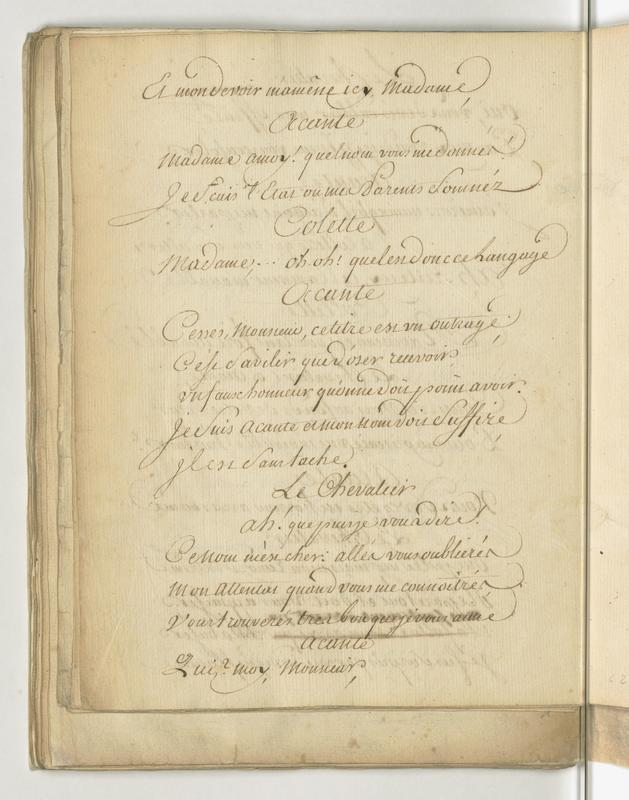 Et mon devoir m'amène icy, Madame
Acante
Madame a moy! quel nom vous me donnés!
Je sçais l'Etat ou mes Parents sont néz
Colette
Madame, ... oh oh! quel est donc ce Langage
Acante
Cessés, Monsieur, ce titre est un outrage
C'est s'avilir que d'oser recevoir
un faux honneur qu'on ne doit point avoir.
Je suis Acante et mon nom doit suffire
jl est sans tache.
Le Chevalier
ah! que puis-je vous dire!
Ce nom m'est cher: allés vous oublierés
Mon Attentat quand vous me connoitrés
Vous trouverés tres bon que je vous aime
Acante
Qui? moy, Monsieur,